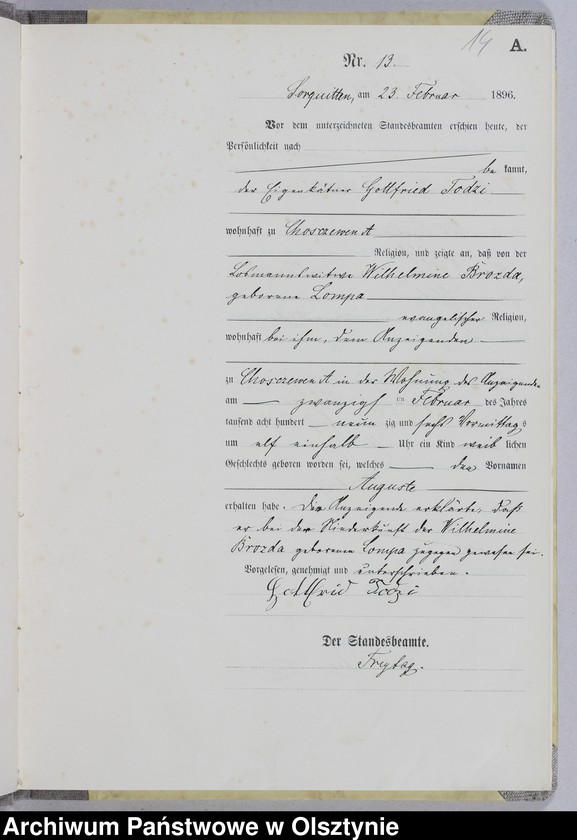 14
A.
Nr. 13.
Sorquitten, am 23 Februar 1896.
Vor dem unterzeichneten Standesbeamten erschien heute, der
Persönlichkeit nach
be kannt,
der Eigenkätner Gottfried Todzi
wohnhaft zu Choszewen A
Religion, und zeigte an, daß von der
Losmannswitwe Wilhelmine Brozda,
geborene Lompa
evangelischer Religion,
wohnhaft bei ihm, dem Anzeigenden
zu Choszewen A in der Wohnung des Anzeigenden
am zwanzigst en Februar des Jahres
tausend acht hundert neun zig und sechs Vormittags
um elf einhalb Uhr ein Kind weib lichen
Geschlechts geboren worden sei, welches den Vornamen
Auguste
erhalten habe. Der Anzeigende erklärte, daß
er bei der Niederkunft der Wilhelmine
Brozda geborene Lompa zugegen gewesen sei.
Vorgelesen, genehmigt und unterschrieben.
Gottfrid Todzi
Der Standesbeamte.
Freytag.
Archiwum Państwowe w Olsztynie